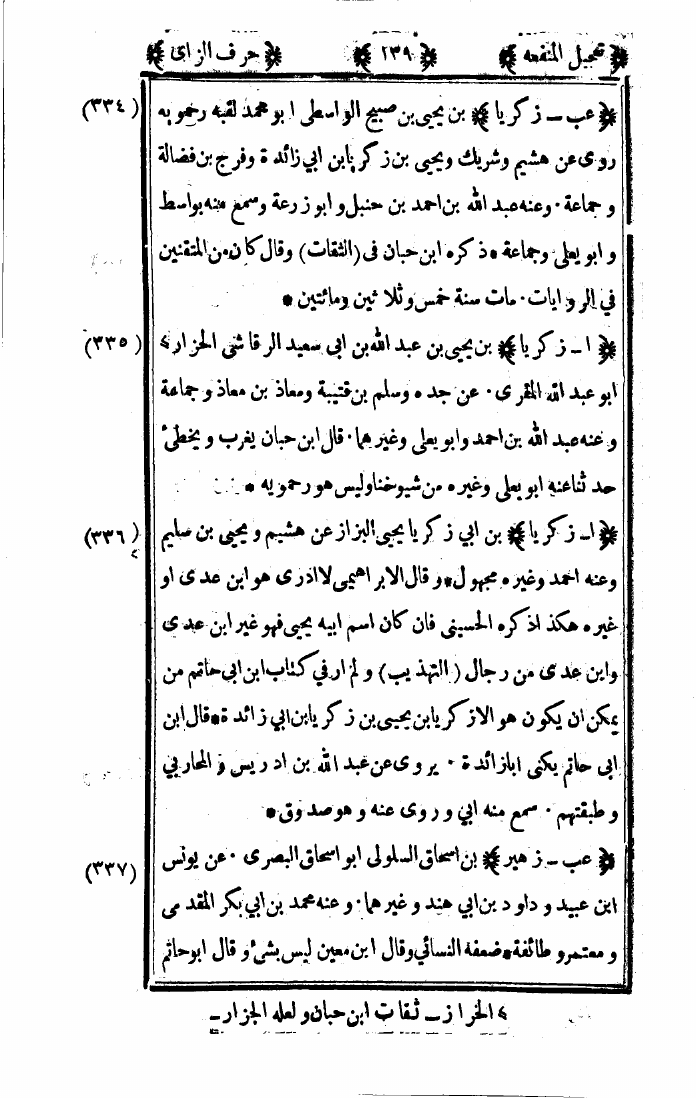 ﴿ تعجيل المنفعه ﴾ ﴿ ١٣٩ ﴾ ﴿ حرف الزاى ﴾
﴿ عب ـ زكريا ﴾ بن يحيى بن صبيح الواسطى ابو محمد لقبه رحمويه (٣٣٤)
روى عن هشيم وشريك ويحيى بن زكريا بن ابي زائدة وفرج بن فضالة
و جماعة ٠ وعنه عبد الله بن احمد بن حنبل و ابو زرعة وسمع منه بواسط
و ابو يعلى وجماعة * ذكره ابن حبان فى (الثقات) وقال كان من المتقنين
في الروايات ٠ مات سنة خمس وثلاثين ومائتين *
﴿ ا ـ زكريا ﴾ بن يحيى بن عبد الله بن ابى سعيد الرقاشى الخزار ٤ (٣٣٥)
ابو عبد الله المقرى ٠ عن جده وسلم بن قتيبة ومعاذ بن معاذ و جماعة
و عنه عبد الله بن احمد وابو يعلى وغيرهما ٠ قال ابن حبان يغرب و يخطئ
حدثنا عنه ابو يعلى وغيره من شيوخنا وليس هو رحمويه *
﴿ ا ـ زكريا ﴾ بن ابي زكريا يحيى البزاز عن هشيم و يحيى بن سليم (٣٣٦)
وعنه احمد وغيره مجهول * و قال الابراهيمى لا ادرى هو ابن عدى او
غيره هكذا ذكره الحسينى فان كان اسم ابيه يحيى فهو غير ابن عدى
وابن عدى من رجال (التهذيب) و لم ار في كتاب ابن ابي حاتم من
يمكن ان يكون هو الا زكريا بن يحيى بن زكريا بن ابي زائدة * قال ابن
ابى حاتم يكنى ابا زائدة ٠ يروى عن عبد الله بن ادريس و المحاربي
و طبقتهم ٠ سمع منه ابي و روى عنه و هو صدوق *
﴿ عب ـ زهير ﴾ بن اسحاق السلولى ابو اسحاق البصرى ٠ عن يونس (٣٣٧)
ابن عبيد و داود بن ابي هند و غيرهما ٠ و عنه محمد بن ابي بكر المقدمى
و معتمر و طائفة * ضعفه النسائي وقال ابن معين ليس بشئ و قال ابو حاتم
٤ الخراز ـ ثقات ابن حبان و لعله الجزار ـ